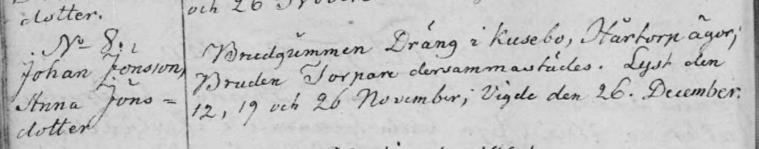 dotter.
och 26
No 8.
Johan Jönsson,
Anna Jöns=
dotter
Brudgummen Dräng i Kusebo, Hårtorp ägor;
Bruden Torpare dersammastädes. Lyst den
12, 19 och 26 November; Vigde den 26. December.